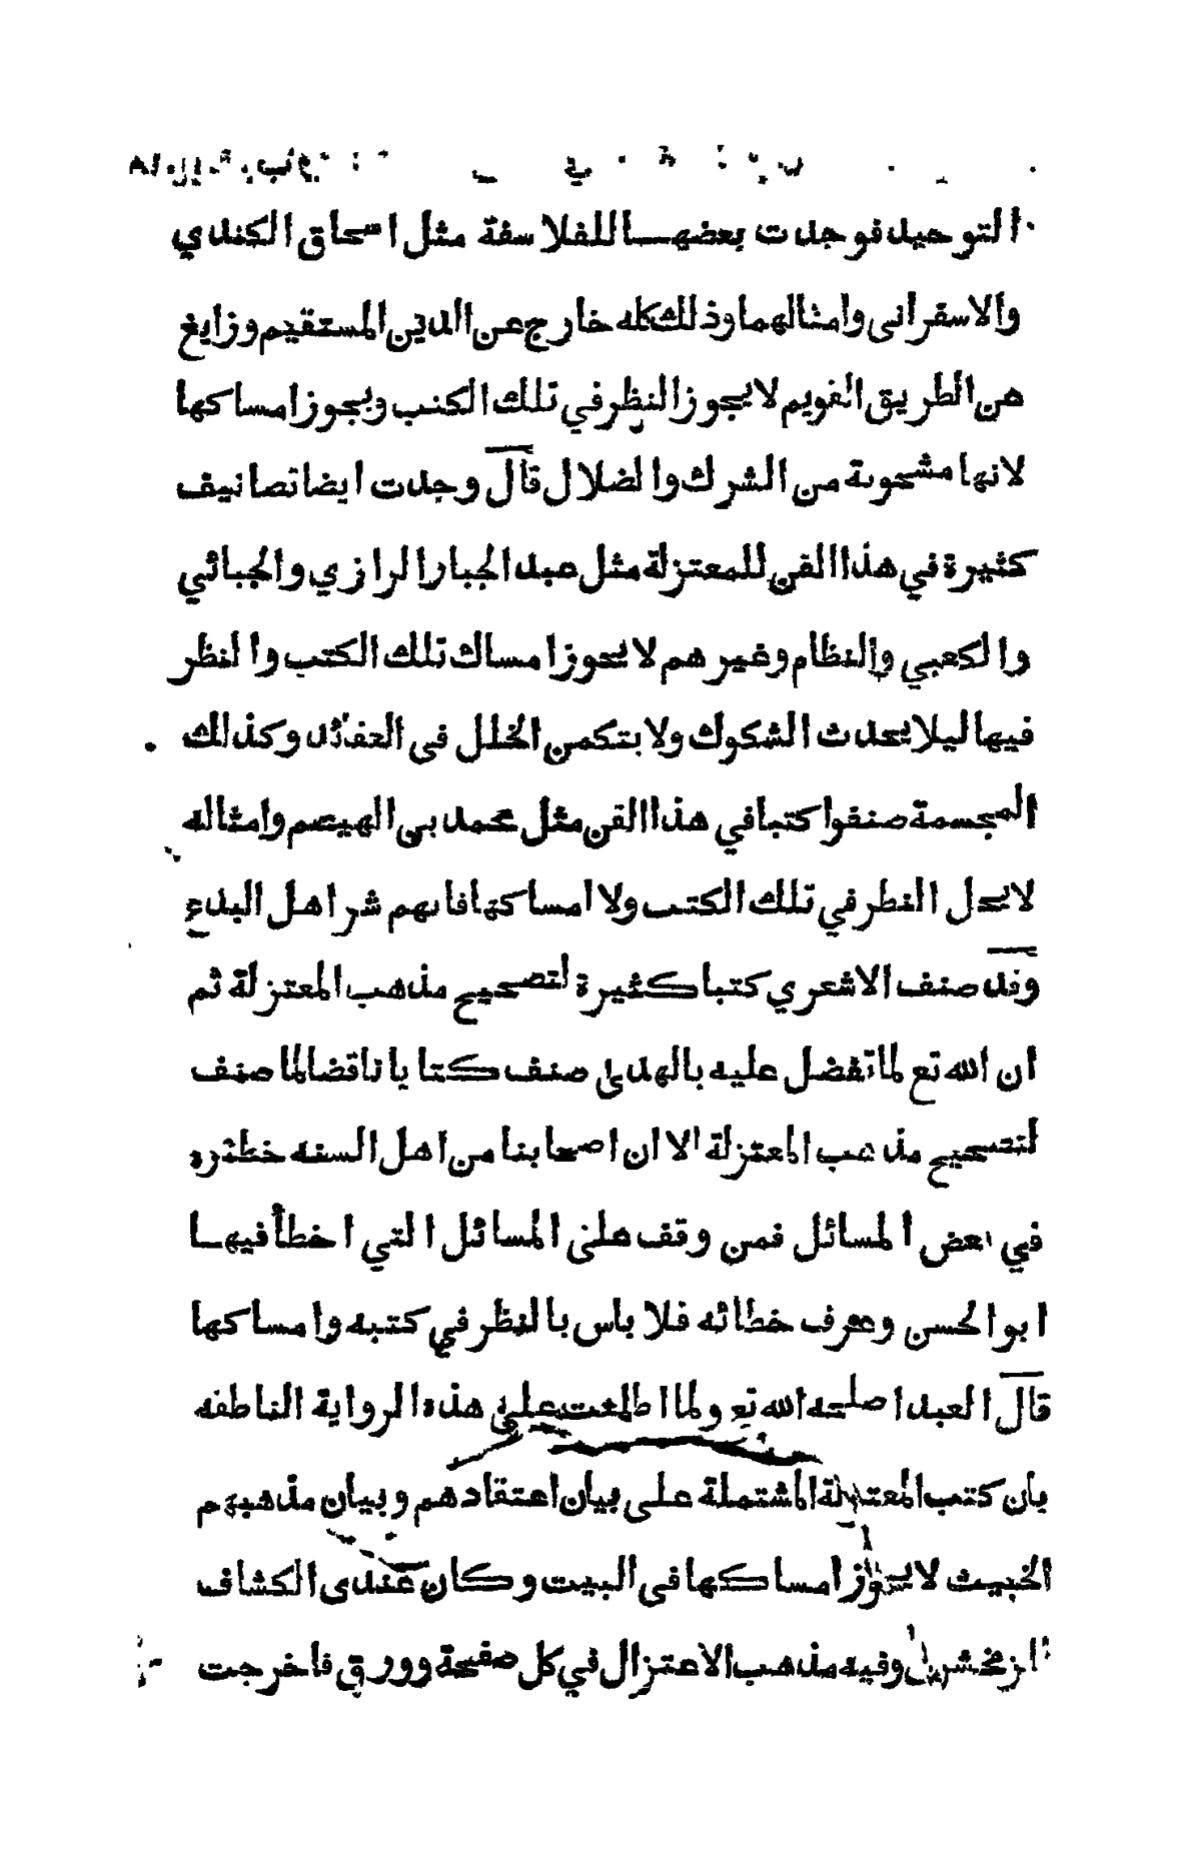 التوحيد فوجدت بعضهـا للفلاسفة مثل اسحاق الكندي
والاسقرانى وامثالهما وذلك كله خارج عن الدين المستقيم وزايغ
عن الطريق القويم لا يجوز النظر في تلك الكتب ويجوز امساكها
لانها مشحونة من الشرك والضلال قال وجدت ايضا تصانيف
كثيرة في هذا الفن للمعتزلة مثل عبد الجبار الرازي والجبائي
والكعبي والنظام وغيرهم لا يجوز امساك تلك الكتب والنظر
فيها ليلا يحدث الشكوك ولا يتكمن الخلل فى العقائد وكذلك
المجسمة صنفوا كتبا في هذا الفن مثل محمد بن الهيصم وامثاله
لا يحل النظر في تلك الكتب ولا امساكها فانهم شر اهل البدع
وقد صنف الاشعري كتبا كثيرة لتصحيح مذهب المعتزلة ثم
ان الله تع لما تفضل عليه بالهدى صنف كتابا ناقضا لما صنف
لتصحيح مذهب المعتزلة الا ان اصحابنا من اهل السنه خطئوه
في بعض المسائل فمن وقف على المسائل التي اخطأ فيهـا
ابو الحسن وعرف خطائه فلا باس بالنظر في كتبه وامساكها
قال العبد اصلحه الله تع ولما اطلعت على هذه الرواية الناطقه
بان كتب المعتزلة المشتملة على بيان اعتقادهم وبيان مذهبهم
الخبيث لا يجوز امساكها فى البيت وكان عندى الكشاف
الزمخشري وفيه مذهب الاعتزال في كل صفحة وورق فاخرجت